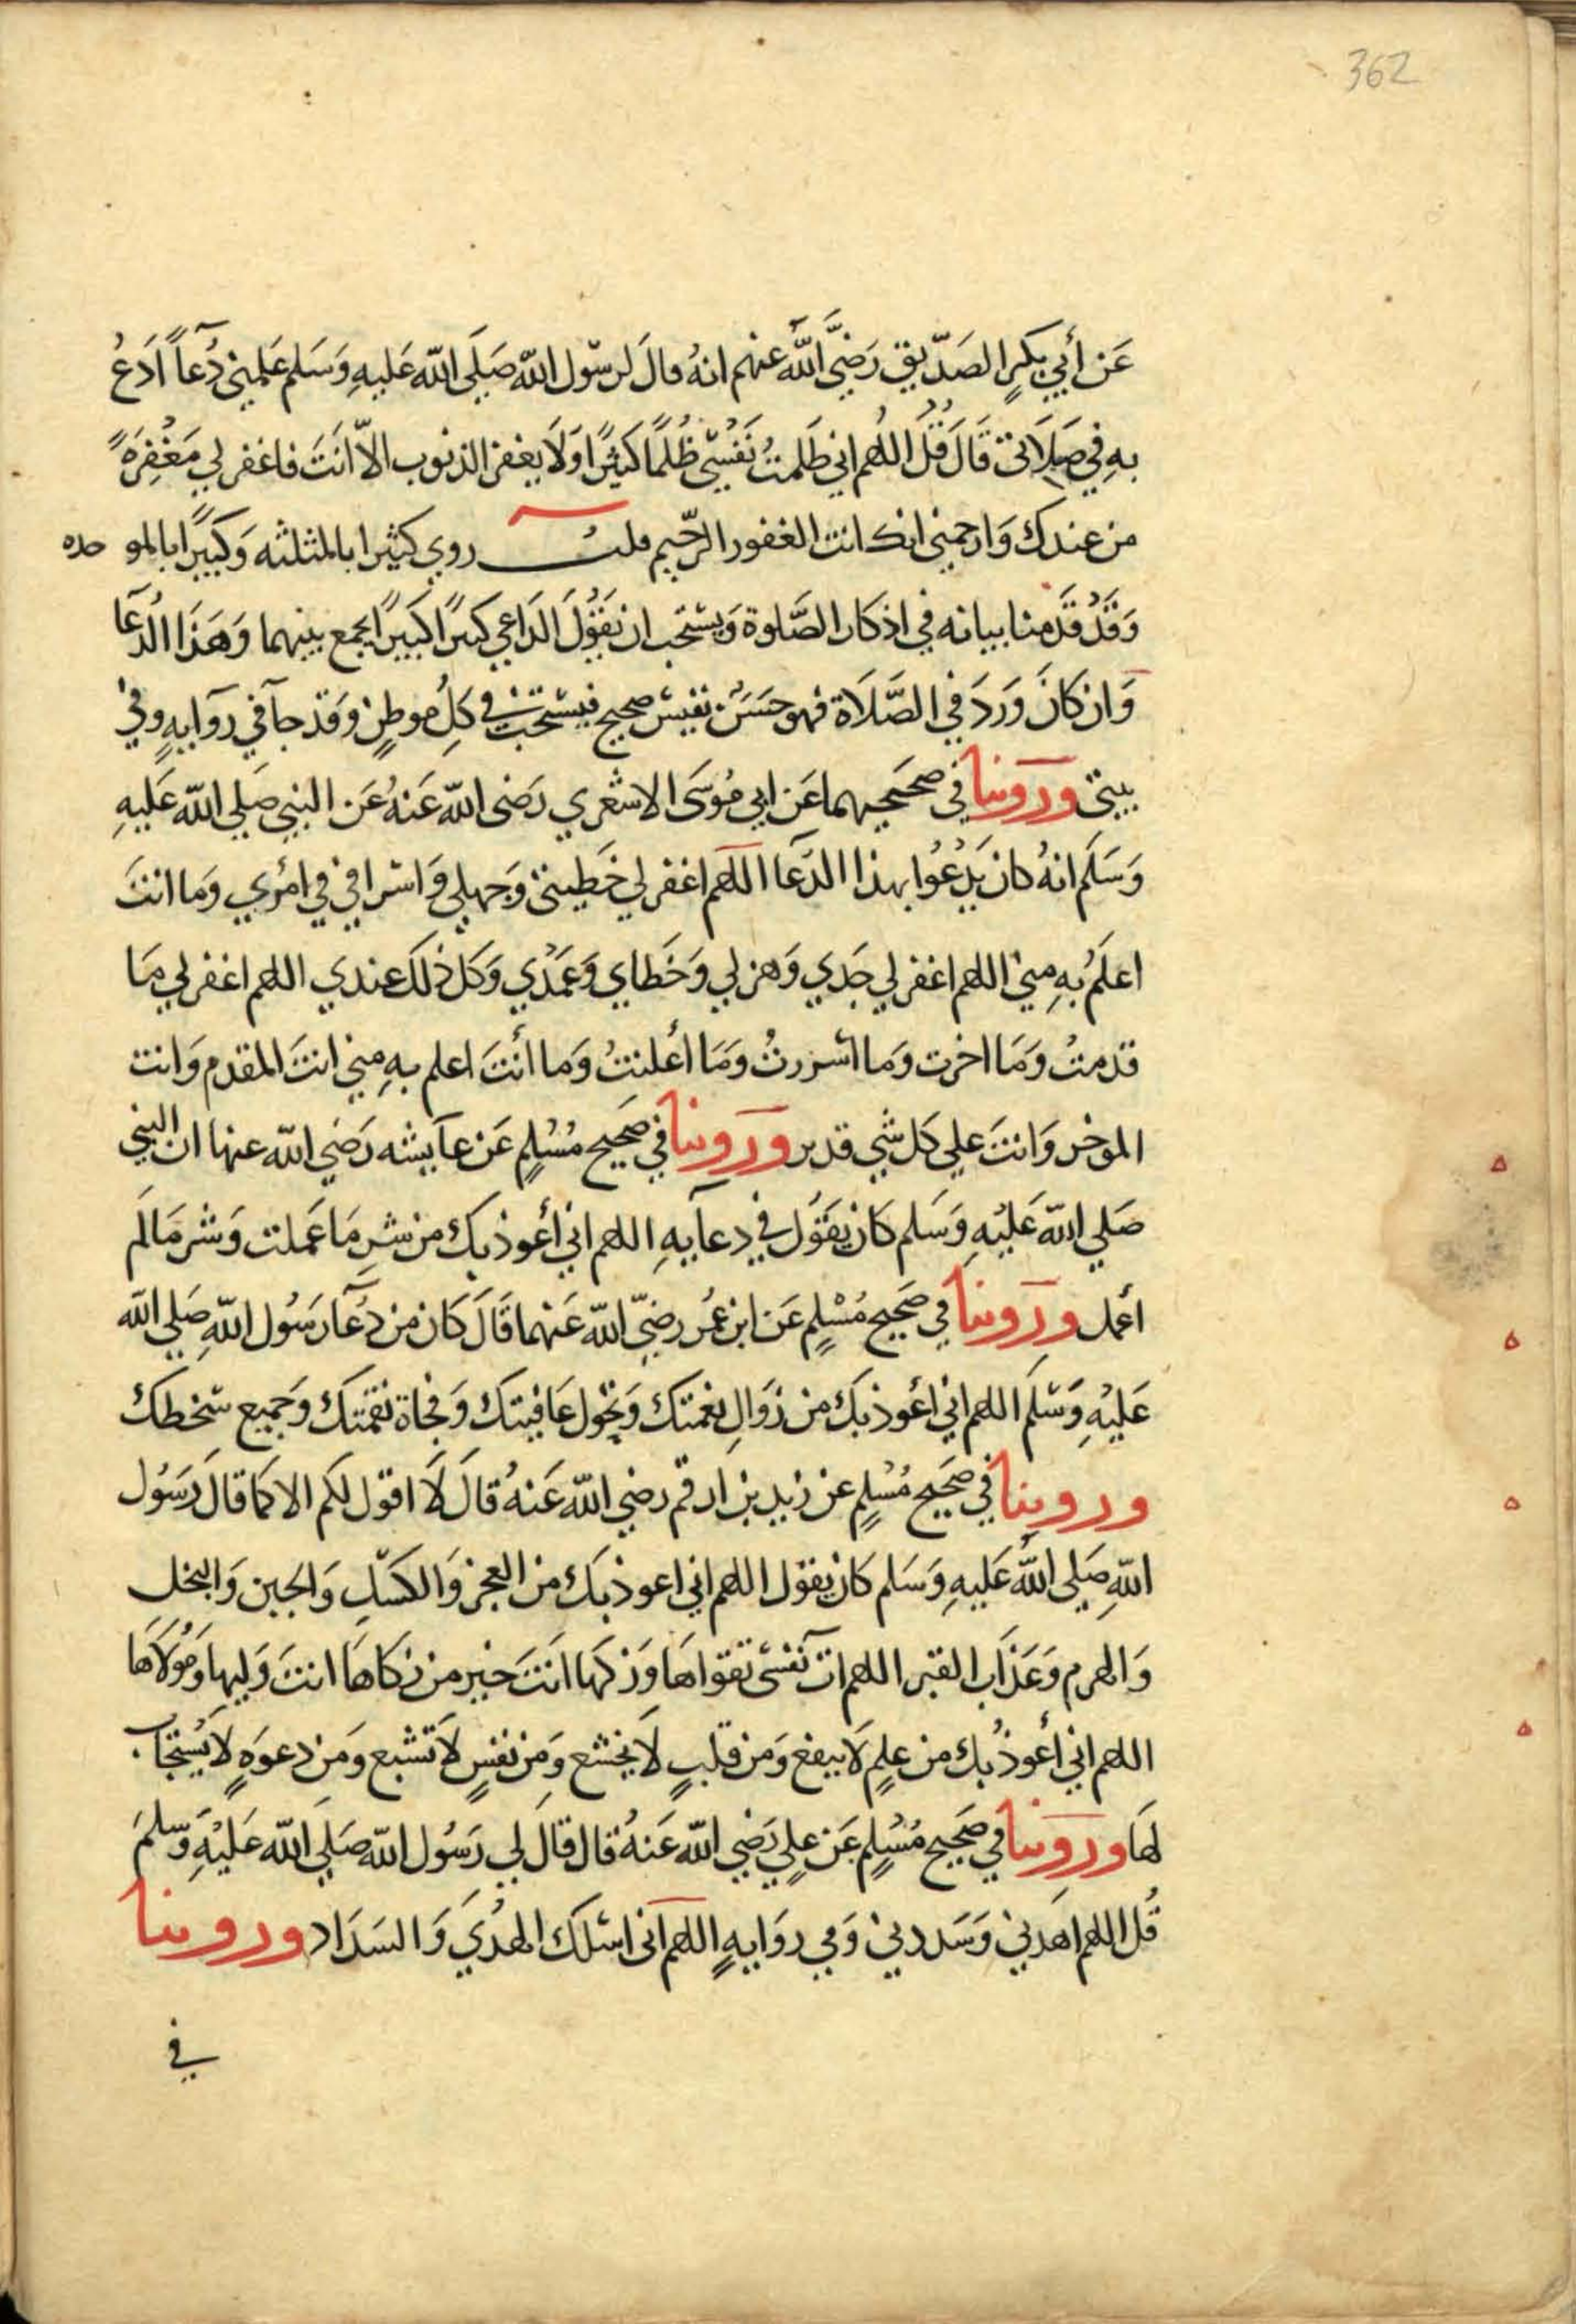 362
عَن أَبي بكرٍ الصَدّيق رَضِيَّ اللَّه عنهم انهُ قالَ لرسّول اللّه صَلَي اللّه عَليهِ وَسَلم عَلمِني دُعاً اَدَعُ
بهِ في صَلاَتى قَالَ قُلَ اللهُم اني ظَلمتُ نَفسْي ظُلمًا كَثيرًا وَلَا يغفر الذنوب الاّ انَتَ فاغفر لي مَغْفِرَةً
من عندك وَارحمني انك انت الغفور الرّحيم قلت روي كثيرا بالمثلثه وَكبيرًا بالمو حده
وَقَدْ قَدَمنا بيانه في اذكار الصَّلوة وَيستحب ان يَقُوْلَ الدَاعي كثيرًا كَبيرًا يجمع بينهما وَهَذا الدُعَا
وَان كَانَ وَرَدَ في الصَّلَاة فهو حَسَنٌ نفيسٌ صحيح فيستحَبُ في كِلُ موطِنٍ وَقد جآ في رَوايهٍ وفي
بيتى وَرَوَينا في صحَيحيهما عَن ابي مُوسَى الاشعري رَضى اللّه عَنهُ عَن النبي صَلي اللّه عَليهِ
وَسَلَم انهُ كان يَدْعُوا بهذا الدَعَا اللهم اغفر لي خَطيئتى وَجهلي وَاسرافي في امْري وَما انتَ
اعلَمُ بهِ مني اللهم اغفر لي جَدي وَهزلي وَخَطاي وَعَمْدي وَكل ذلكَ عندي اللهم اغفر لي مَا
قدمتُ وَمَا اخرت وَما اسررتُ وَمَا أعلنتُ وَما أنْتَ اعلم بهِ مني انتَ المقدم وَانت
الموخر وَانتَ علي كل شي قدير وَرَوينا في صَحيح مُسْلمٍ عَن عَايشه رَضي اللّه عنها ان النبي
صَلي اللّه عَليْهِ وَسَلم كانَ يقَوُل في دعآيهِ اللهم اني أعوذ بكَ من شرِ مَا عَملت وَشر مَا لَم
أعمل وَرَوينا في صَحيح مُسْلمٍ عَن ابن عُمر رضيّ اللّه عَنهما قَالَ كَان من دُعَآ رَسُول اللّهِ صَلي اللّه
عَليْهِ وَسَلَم اللهم اني أعوذ بكَ من زَوَالِ نعمَتكَ وَتحَول عَافيتكَ وَفجاة نقمَتكَ وَجَميع سَخطكَ
وروينا في صَحَيح مُسْلمٍ عن زيد بن ارقم رضي اللّه عَنهُ قالَ لَا اقول لكم الا كما قالَ رَسُول
اللّهِ صَلي اللَّه عَليهِ وَسَلم كانَ يقول اللهم اني اعوذ بكَ من العجز وَالكسَلِ وَالجبن وَالبخل
وَالهرم وَعَذاب القبر اللهم اتَ نَفسْى تقواهَا وَزكها انَتَ خير من زكاهَا انتَ وَليها وَمُولَاها
اللهم اني أعوذُ بك من علمٍ لَا ينفع وَمن قلبٍ لَا يخشع وَمِن نفسٍ لَا تشبع وَمن دعوَهٍ لَا يُستجَاب
لهَا وَرَوَينا في صَحيح مُسْلمٍ عَن علي رَضي اللّه عَنهُ قال قالَ لي رَسُول اللّه صَلي اللّه عَليْهِ وَسلمَ
قُل اللهم اهَدني وَسَددني وَفي روَايهٍ اللهم اَنى اسئلكَ الهدُي وَالسَدَاد وروينا
في